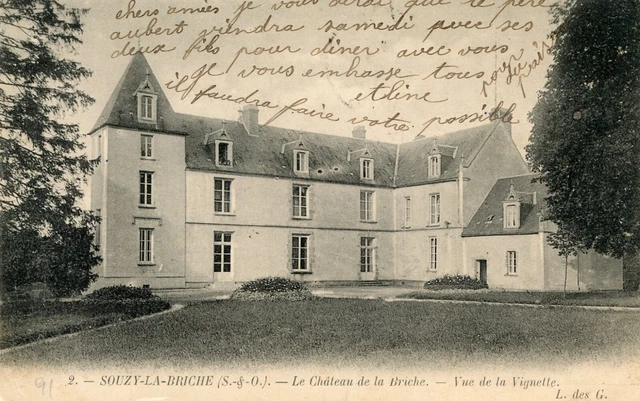 chers amies je vous dirai que le père
aubert viendra samedi avec ses
deux fils pour diner avec vous
Je vous embrasse tous
etline
il faudra faire votre possible
pour
2. - SOUZY-LA-BRICHE (S.-&-O.). - Le Château de la Briche. - Vue de la Vignette.
L. des G.
91